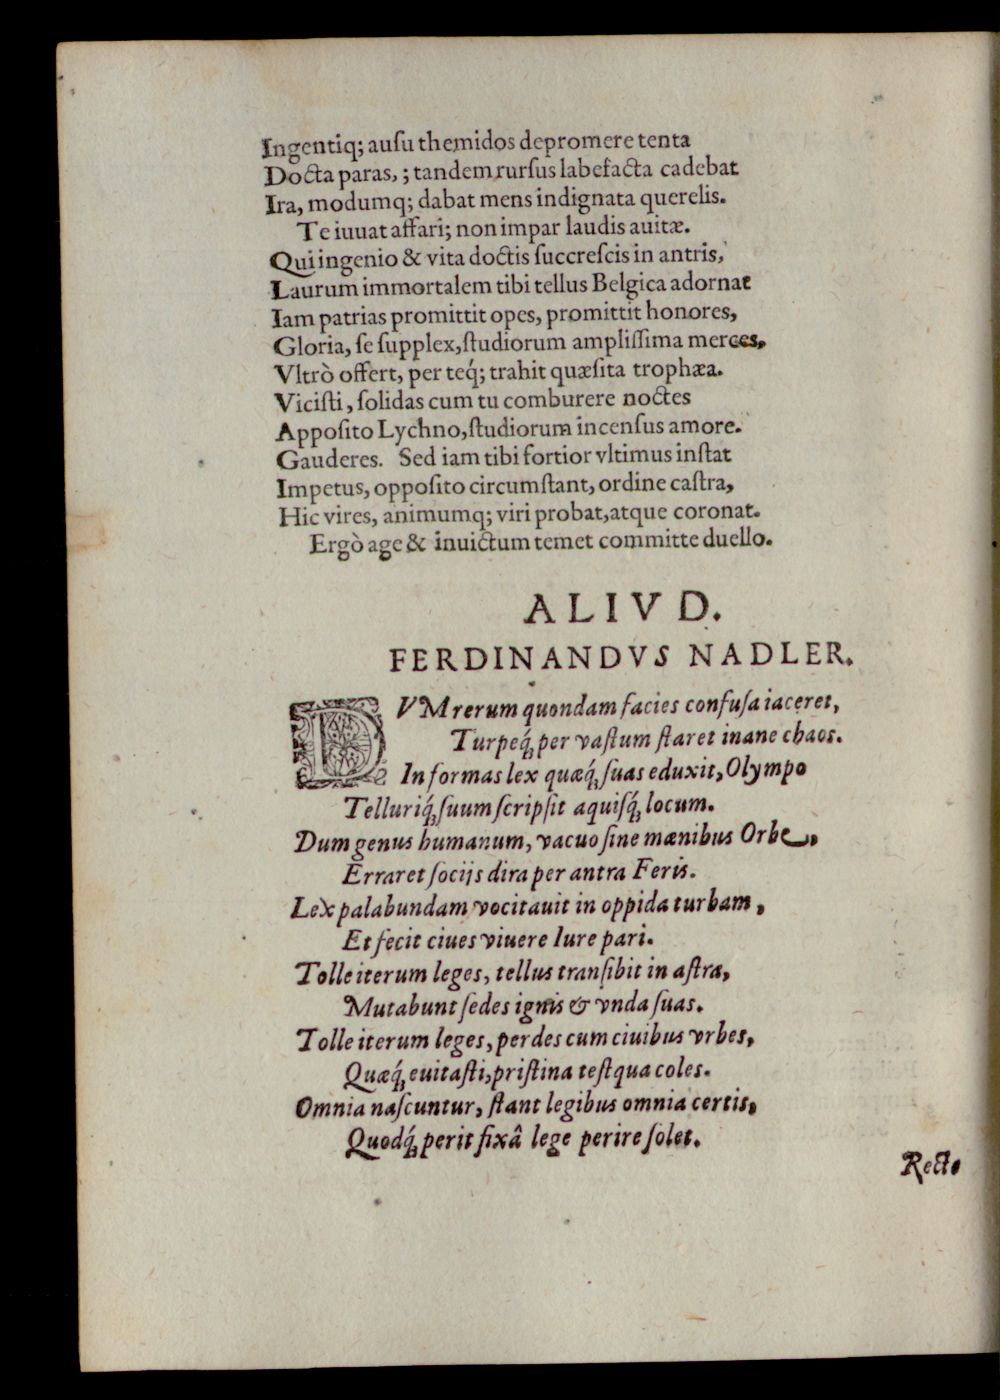 Ingentiq; auſu themidos depromere tenta
Docta paras, ; tandem rurſus labefacta cadebat
Ira, modumq; dabat mens indignata querelis.
Te iuuat affari; non impar laudis auitæ.
Qui ingenio & vita doctis ſuccreſcis in antris,
Laurum immortalem tibi tellus Belgica adornat
Iam patrias promittit opes, promittit honores,
Gloria, ſe ſupplex, ſtudiorum ampliſſima merces,
Vltrò offert, per teq́; trahit quæſita trophæa.
Viciſti, ſolidas cum tu comburere noctes
Appoſito Lychno, ſtudiorum incenſus amore.
Gauderes. Sed iam tibi fortior vltimus inſtat
Impetus, oppoſito circumſtant, ordine caſtra,
Hic vires, animumq; viri probat, atque coronat.
Ergò age & inuictum temet committe duello.
ALIVD.
FERDINANDVS NADLER.
DVM rerum quondam facies confuſa iaceret,
Turpeq́; per vaſtum ſtaret inane chaos.
In formas lex quæq́; ſuas eduxit, Olympo
Telluriq́; ſuum ſcripſit aquiſq́; locum.
Dum genus humanum, vacuo ſine mænibus Orbe,
Erraret ſocijs dira per antra Feris.
Lex palabundam vocitauit in oppida turbam,
Et fecit ciues viuere Iure pari.
Tolle iterum leges, tellus tranſibit in aſtra,
Mutabunt ſedes ignis & vnda ſuas.
Tolle iterum leges, perdes cum ciuibus vrbes,
Quæq́; euitaſti, priſtina teſtqua coles.
Omnia naſcuntur, ſtant legibus omnia certis,
Quodq́; perit fixâ lege perire ſolet.
Recto